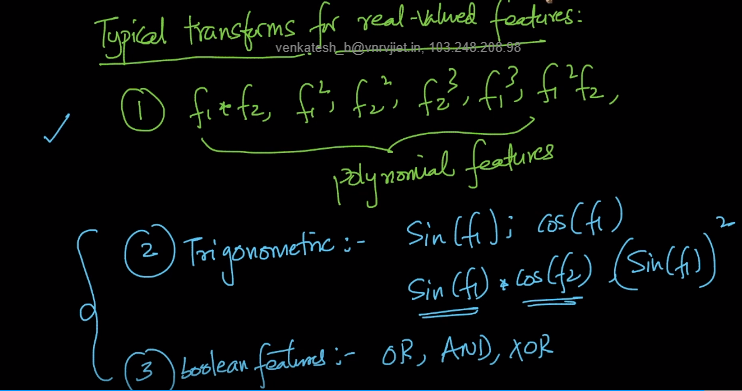 Typical transforms for real-valued features:
venkatesh_b@vnrvjiet.in, 103.248.208.98
① f₁*f₂, f₁², f₂², f₂³, f₁³, f₁²f₂,
polynomial features
② Trigonometric:- Sin(f₁); cos(f₁)
Sin(f₁) * cos(f₂) (Sin(f₁))²
③ boolean features:- OR, AND, XOR